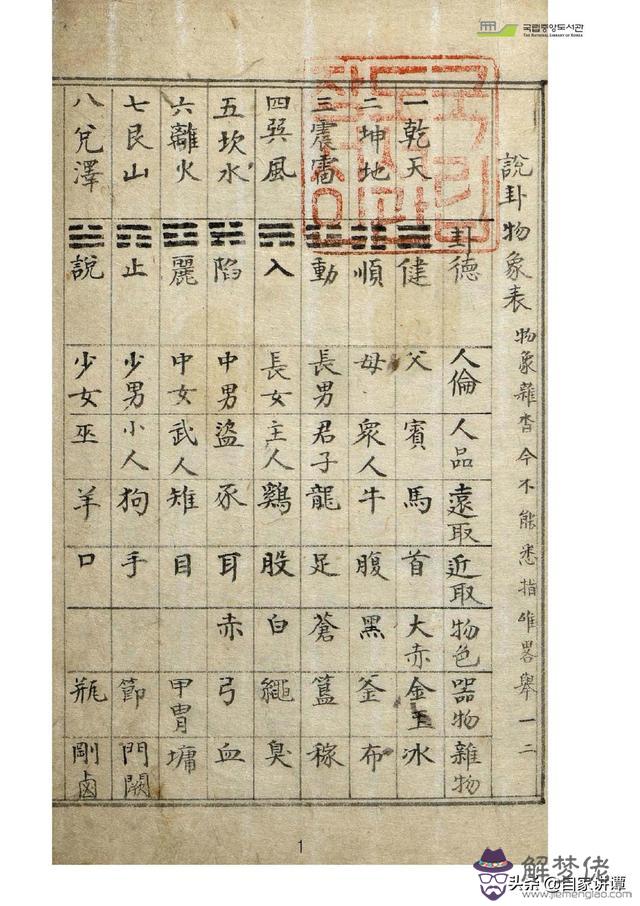 국립중앙도서관
THE NATIONAL LIBRARY OF KOREA
說卦物象表 物象雜沓今不能悉指唯畧舉一二
卦德 人倫 人品 遠取 近取 物色 器物 雜物
一乾天 健 父 賓 馬 首 大赤 金玉 冰
二坤地 順 母 衆人 牛 腹 黑 釜 布
三震雷 動 長男 君子 龍 足 蒼 簋 稼
四巽風 入 長女 主人 鷄 股 白 繩 臭
五坎水 陷 中男 盜 豕 耳 赤 弓 血
六離火 麗 中女 武人 雉 目 甲冑 墉
七艮山 止 少男 小人 狗 手 節 門闕
八兌澤 說 少女 巫 羊 口 瓶 剛鹵
1
解梦佬
头条 @自家讲谭
www.jiemenglao.com